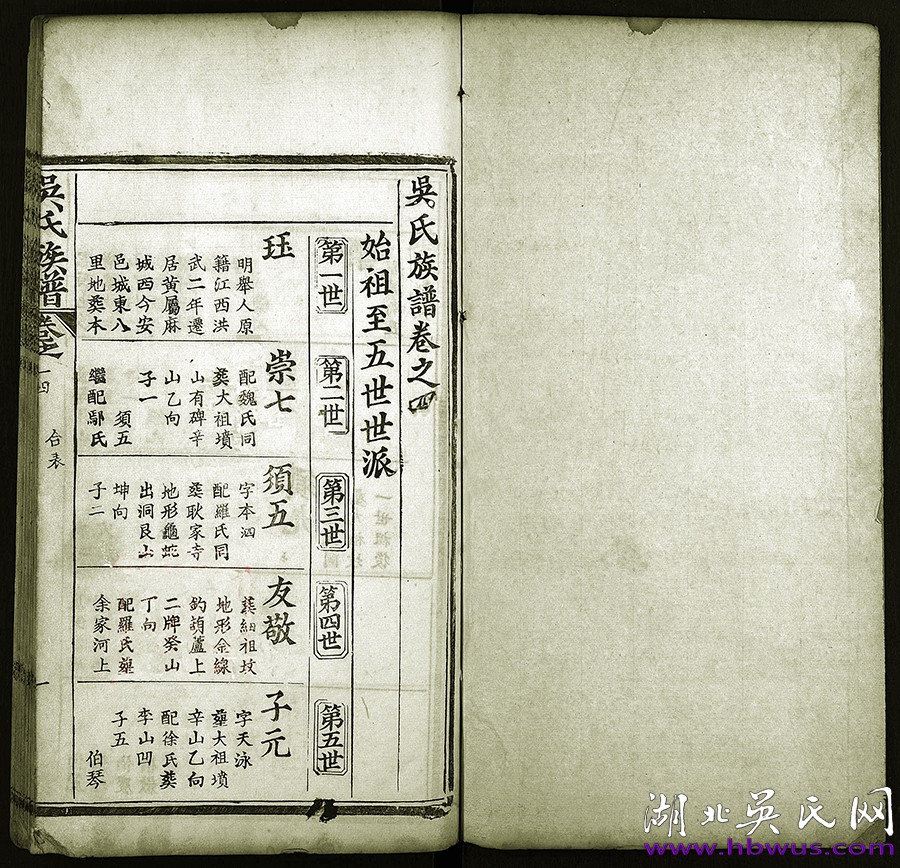 吳氏族譜卷之四
始祖至五世世派
第一世
珏
明舉人原
籍江西洪
武二年遷
居黃屬麻
城西今安
邑城東八
里地葬本
第二世
崇七
配魏氏同
葬大祖墳
山有碑辛
山乙向
子一
須五
繼配鄢氏
第三世
須五
字本泗
配羅氏同
葬耿家寺
地形龜蛇
出洞艮山
坤向
子二
第四世
友敬
葬細祖坟
地形金線
釣葫蘆上
二牌癸山
丁向
配羅氏塟
余家河上
第五世
子元
字天泳
塟大祖墳
辛山乙向
配徐氏葬
李山凹
子五
伯琴
吳氏族譜
卷之
四
合表
一
湖北吳氏网
www.hbwus.com